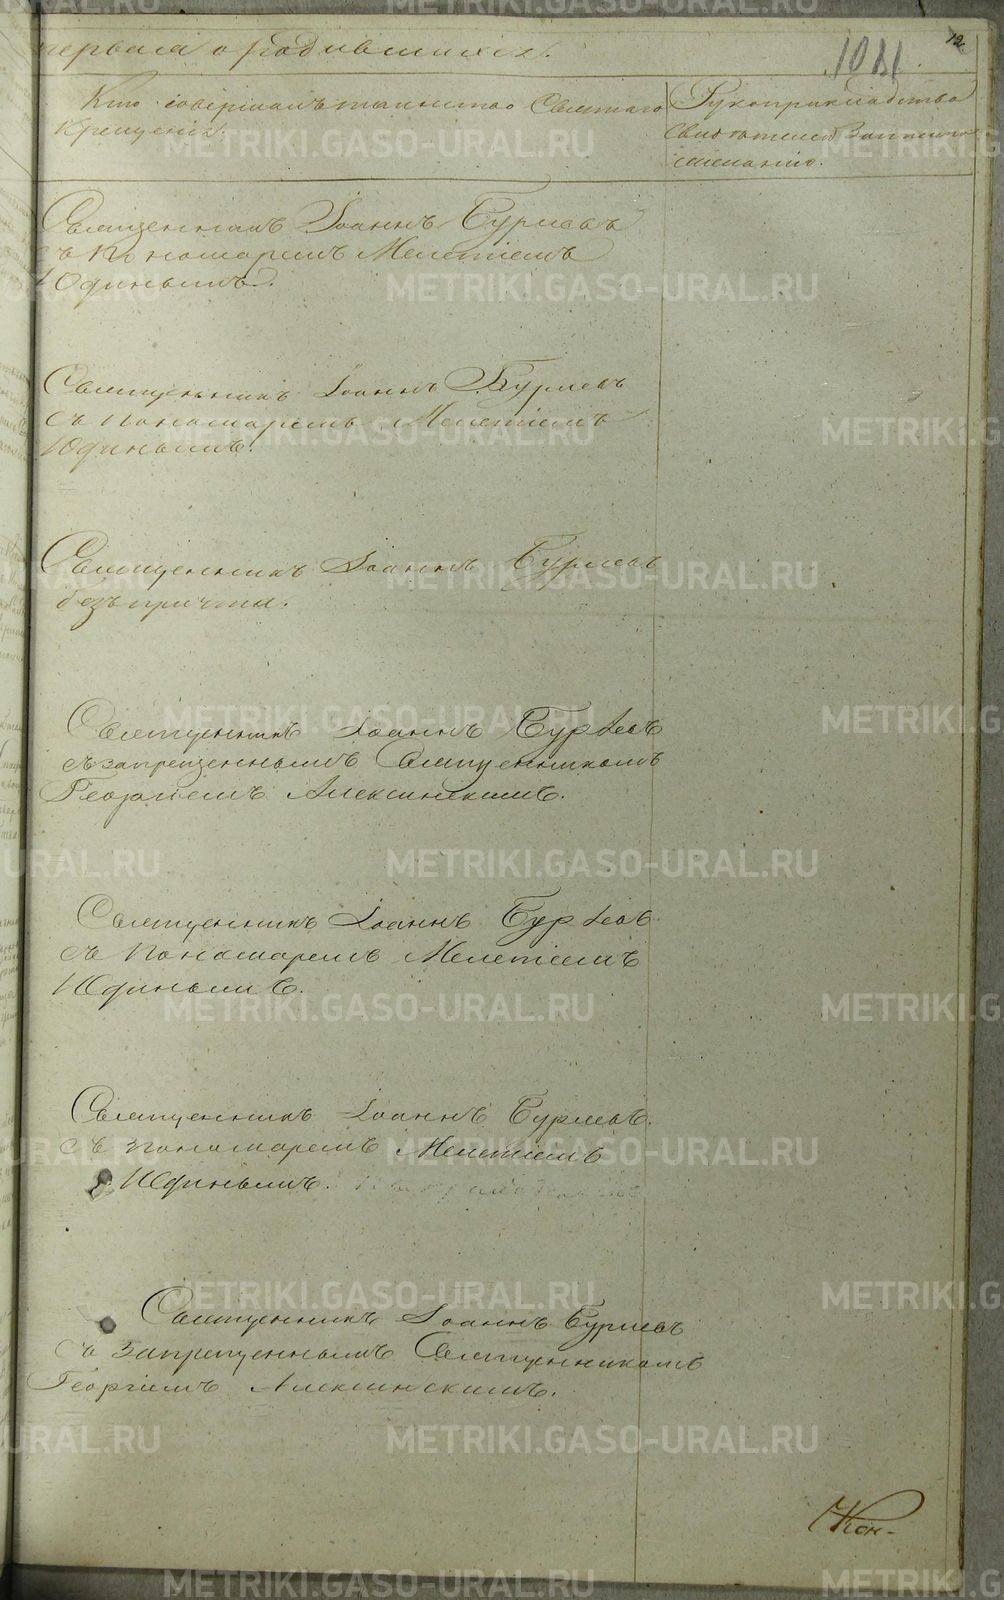 первая о родившихся.
1081
12
Кто совершалъ таинство Святаго
Крещенія.
Рукоприкладство
свидѣтелей записи
желанію.
Священникъ Іоаннъ Бурлевъ
съ Пономаремъ Мелетіемъ
Юдинымъ.
Священникъ Іоаннъ Бурлевъ
съ Пономаремъ Мелетіемъ
Юдинымъ.
Священникъ Іоаннъ Бурлевъ
безъ причта.
Священникъ Іоаннъ Бурлевъ
съ запрещеннымъ Священникомъ
Георгіемъ Алексинскимъ.
Священникъ Іоаннъ Бурлевъ
съ Пономаремъ Мелетіемъ
Юдинымъ.
Священникъ Іоаннъ Бурлевъ.
съ Пономаремъ Мелетіемъ
Юдинымъ.
Священникъ Іоаннъ Бурлевъ
съ запрещеннымъ Священникомъ
Георгіемъ Алексинскимъ.
Кон-
METRIKI.GASO-URAL.RU